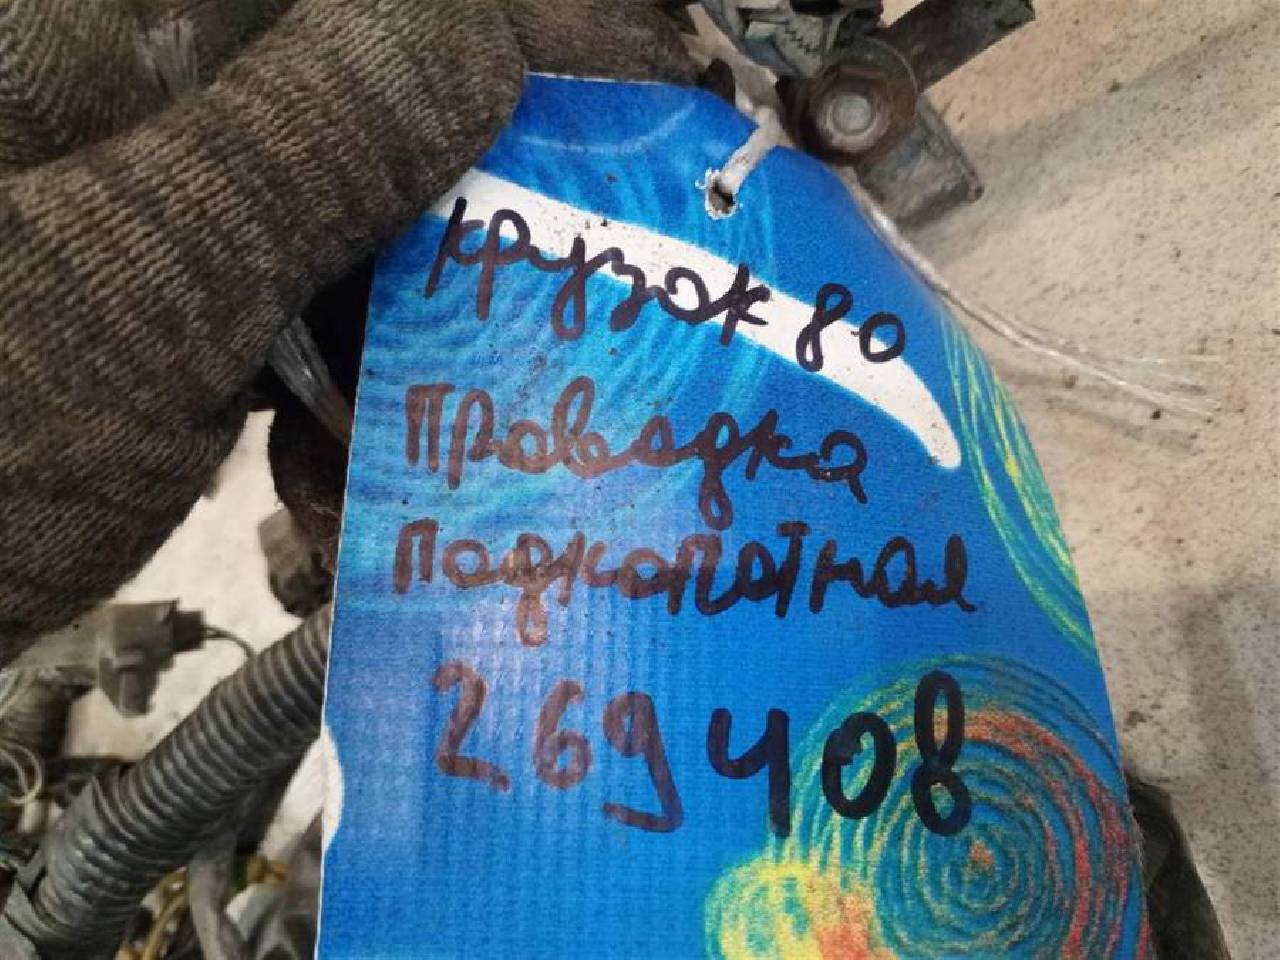 крузак 80
Проводка
подкапотная
269408